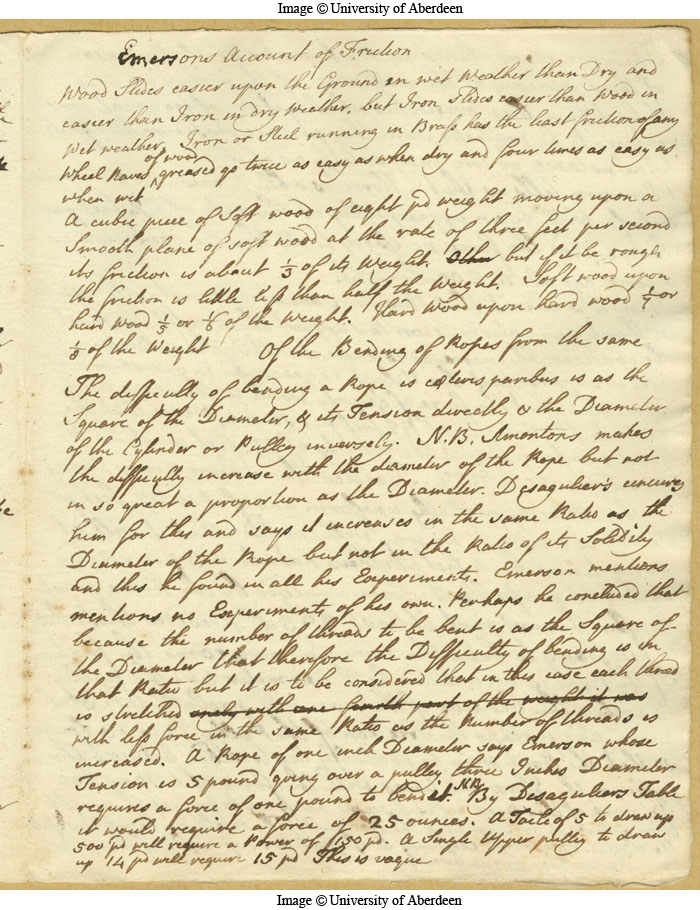 Image © University of Aberdeen
Emersons Account of Friction
Wood Slides easier upon the Ground in wet Weather than Dry and
easier than Iron in dry Weather. but Iron Slides easier than Wood in
Wet weather, Iron or Steel running in Brass has the least friction of any
Wheel Naves of wood greased go twice as easy as when dry and four times as easy as
when wet
A cubic piece of Soft wood of eight pd weight moving upon a
Smooth plane of soft wood at the rate of three feet per second
its friction is about 1/3 of its Weight. Other but if it be rough
the friction is little less than half the Weight. Soft wood upon
hard Wood 1/5 or 1/6 of the Weight. Hard Wood upon hard wood 1/7 or
1/8 of the Weight Of the Bending of Ropes from the same
The difficulty of bending a Rope is cæteris paribus is as the
Square of the Diameter, & its Tension directly & the Diameter
of the Cylinder or Pulley inversely. N.B. Amontons makes
the difficulty increase with the diameter of the Rope but not
in so great a proportion as the Diameter. Desagulier's censures
him for this and says it increases in the same Ratio as the
Diameter of the Rope but not in the Ratio of its Solidity
and this he found in all his Experiments. Emerson mentions
mentions no Experiments of his own. Perhaps he concluded that
because the number of threads to be bent is as the Square of
the Diameter that therefore the Difficulty of bending is in
that Ratio but it is to be considered that in this case each thread
is stretched only with one fourth part of the weight it was
with less force in the same Ratio as the Number of threads is
increased. A Rope of one inch Diameter says Emerson whose
Tension is 5 pound going over a pulley three Inches Diameter
requires a force of one pound to bend it. N.B. By Desaguliers Table
it would require a force of 25 ounces. A Tacle of 5 to draw up
500 pd will require a Power of 150 pd. A Single Upper pulley to draw
up 14 pd will require 15 pd This is vague
Image © University of Aberdeen